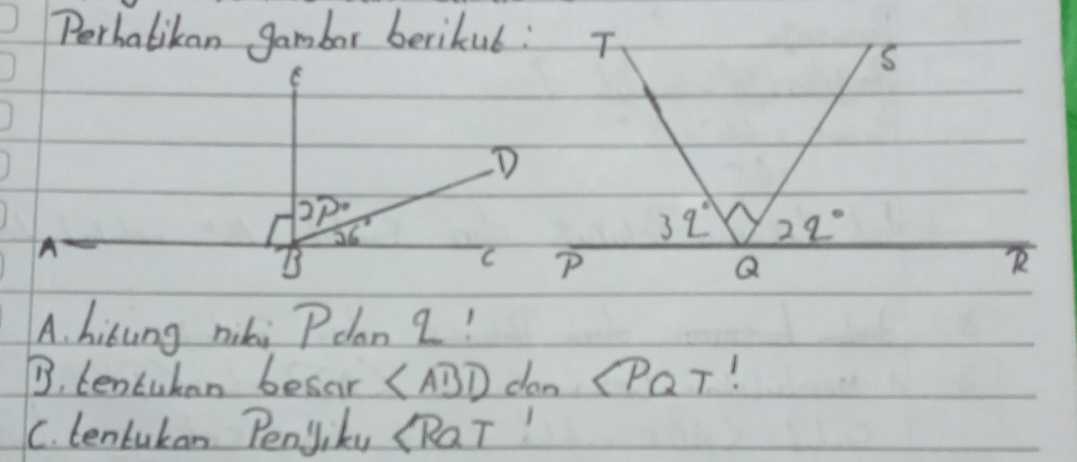 Perhatikan gambar berikut:
T S
E
D
2P° 26°
3q° 2q°
A B C P Q R
A. hitung nilai P dan q!
B. tentukan besar <ABD dan <PQT!
C. tentukan Penyiku <RQT!